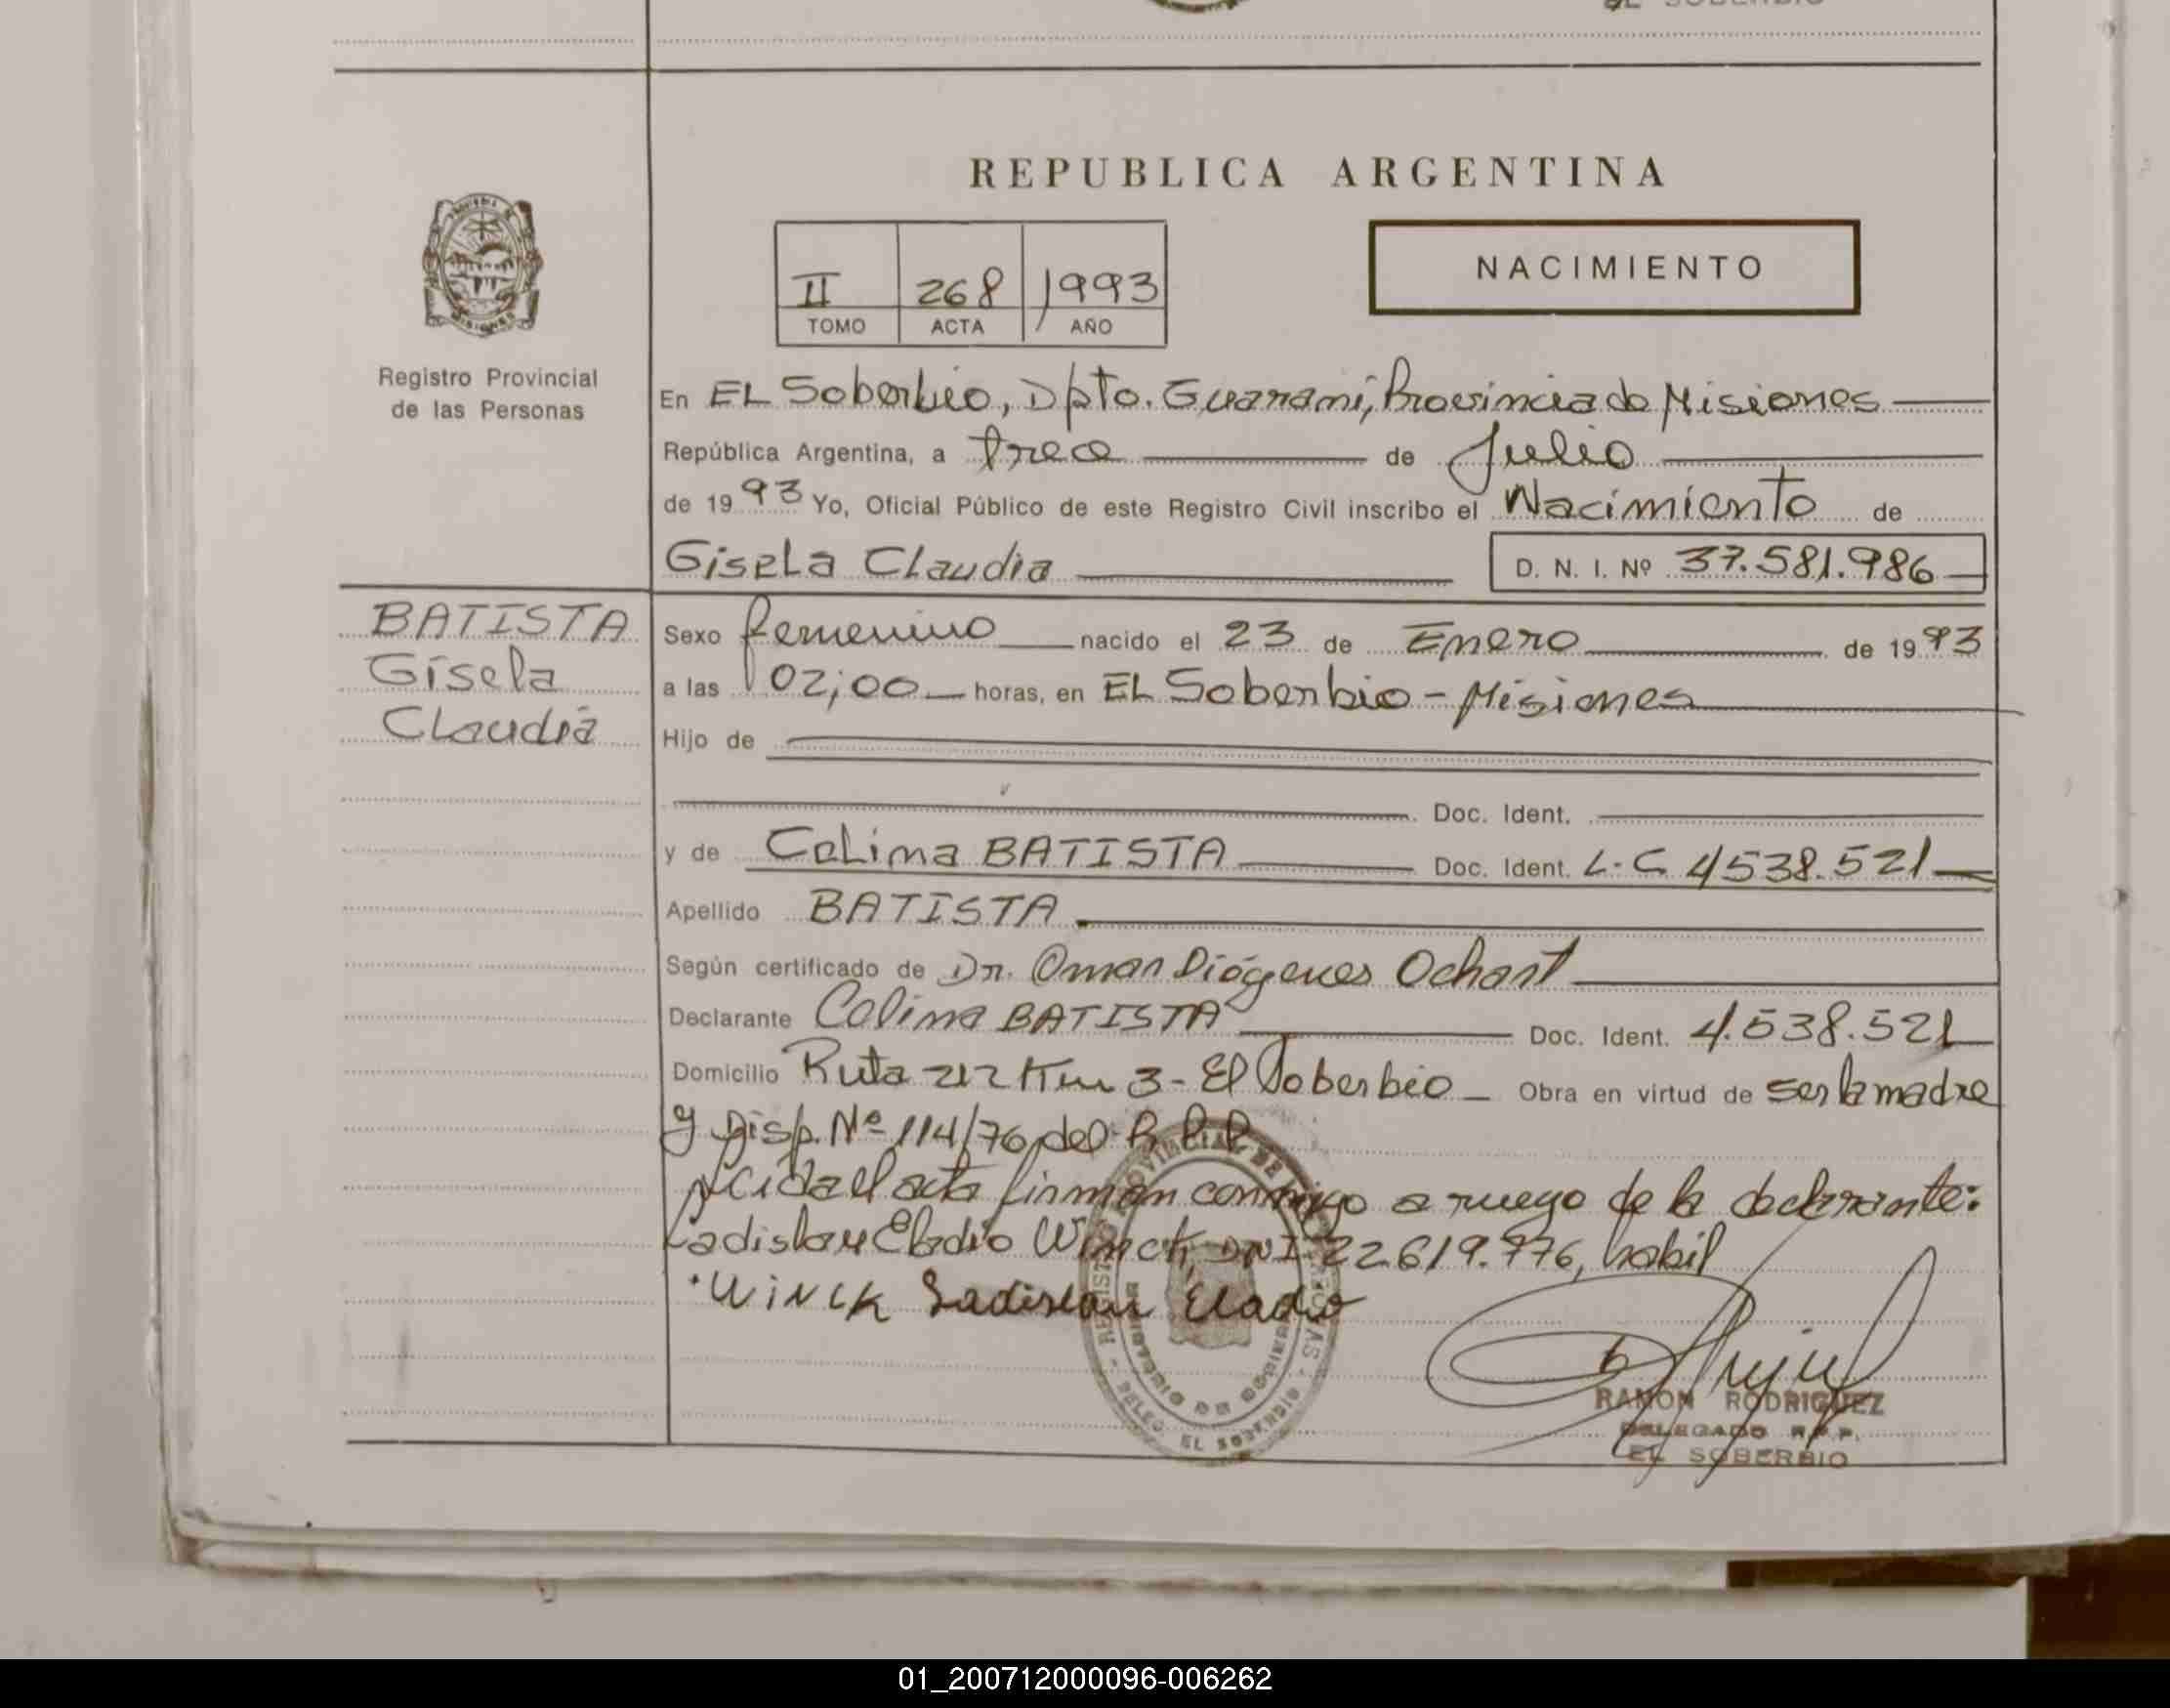 EL SOBERBIO
REPUBLICA ARGENTINA
II 268 1993
TOMO ACTA AÑO
NACIMIENTO
Registro Provincial
de las Personas
En EL Soberbio, Dpto. Guaraní, Provincia de Misiones
República Argentina, a trece de Julio
de 1993 Yo, Oficial Público de este Registro Civil inscribo el Nacimiento de
Gisela Claudia D. N. I. Nº 37.581.986
BATISTA
Gisela
Claudia
Sexo femenino nacido el 23 de Enero de 1993
a las 02;00 horas, en EL Soberbio - Misiones
Hijo de
Doc. Ident.
y de Celima BATISTA Doc. Ident. L.C. 4538.521
Apellido BATISTA
Según certificado de Dr. Omar Diógenes Ochast
Declarante Celima BATISTA Doc. Ident. 4.538.521
Domicilio Ruta 212 Km 3 - El Soberbio Obra en virtud de ser la madre
y Disp. Nº 114/76 del R.P.P.
Leída el acta firman conmigo a ruego de la declarante:
Ladislau Eladio Winck, DNI 22.619.776, habil
WINCK Ladislau Eladio
REGISTRO PROVINCIAL DE LAS PERSONAS
MINISTERIO DE GOBIERNO
DELEG. EL SOBERBIO
RAMON RODRIGUEZ
DELEGADO R.P.P.
EL SOBERBIO
01_200712000096-006262